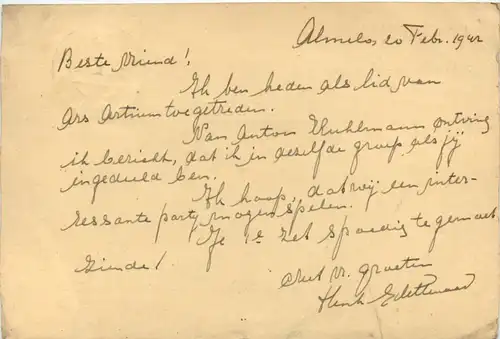 Almelo, 20 Febr. 1942
Beste Vriend!,
Ik ben heden als lid van
Ars Artium toegetreden.
Van Anton Kuhlmann ontving
ik bericht, dat ik in dezelfde groep als jij
ingedeeld ben.
Ik hoop, dat wij een inter-
ressante party mogen spelen.
Je 1e zet spoedig te gemoet
ziende!
Met vr. groeten
Henk